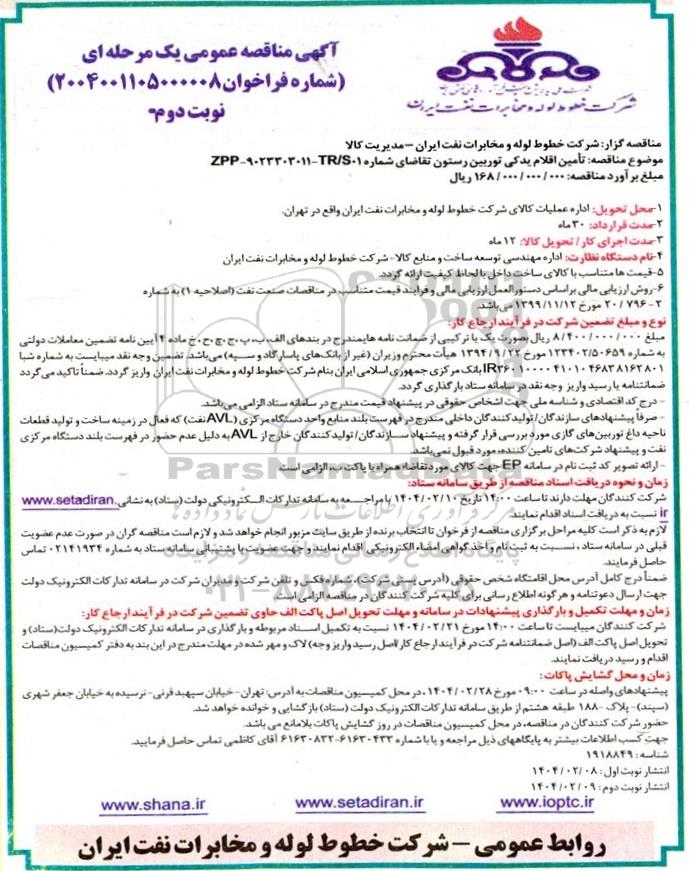 آگهی مناقصه عمومی یک مرحله ای
(شماره فراخوان ۲۰۰۴۰۰۱۱۰۵۰۰۰۰۰۸)
نوبت دوم-
شرکت خطوط لوله و مخابرات نفت ایران
مناقصه گزار: شرکت خطوط لوله و مخابرات نفت ایران – مدیریت کالا
موضوع مناقصه: تأمین اقلام یدکی توربین رستون تقاضای شماره ZPP-۹۰۲۳۳۰۳۰۱۱-TR/S۰۱
مبلغ برآورد مناقصه: ۱۶۸/۰۰۰/۰۰۰/۰۰۰ ریال
۱-محل تحویل: اداره عملیات کالای شرکت خطوط لوله و مخابرات نفت ایران واقع در تهران.
۲-مدت قرارداد: ۳۰ ماه
۳-مدت اجرای کار/ تحویل کالا: ۱۲ ماه
۴-نام دستگاه نظارت: اداره مهندسی توسعه ساخت و منابع کالا-شرکت خطوط لوله و مخابرات نفت ایران
۵-قیمت ها متناسب با کالای ساخت داخل با لحاظ کیفیت ارائه گردد.
۶-روش ارزیابی مالی براساس دستورالعمل ارزیابی مالی و فرایند قیمت متناسب در مناقصات صنعت نفت (اصلاحیه ۱) به شماره
۲-۲۰/۷۹۶ مورخ ۱۳۹۹/۱۱/۱۲ می باشد.
نوع و مبلغ تضمین شرکت در فرآیند ارجاع کار:
مبلغ ۸/۴۰۰/۰۰۰/۰۰۰ ریال بصورت یک یا ترکیبی از ضمانت نامه های مندرج در بندهای الف، ب، پ، ج، چ، ح، خ ماده ۴ آیین نامه تضمین معاملات دولتی
به شماره ۱۲۳۴۰۲/۵۰۶۵۹ مورخ ۱۳۹۴/۹/۲۲ هیأت محترم وزیران (غیر از بانک های پاسارگاد و سپه) می باشد. تضمین وجه نقد میبایست به شماره شبا
IR۳۶۰۱۰۰۰۰۴۱۰۱۰۴۶۸۳۸۱۶۲۸۰۱ بانک مرکزی جمهوری اسلامی ایران بنام شرکت خطوط لوله و مخابرات نفت ایران واریز گردد. ضمناً تاکید می گردد
ضمانتنامه یا رسید واریز وجه نقد در سامانه ستاد بارگذاری گردد.
- درج کد اقتصادی و شناسه ملی جهت اشخاص حقوقی در پیشنهاد قیمت مندرج در سامانه ستاد الزامی می باشد.
- صرفاً پیشنهادهای سازندگان/ تولیدکنندگان داخلی مندرج در فهرست بلند منابع واحد دستگاه مرکزی (AVL نفت) که فعال در زمینه ساخت و تولید قطعات
ناحیه داغ توربین های گازی مورد بررسی قرار گرفته و پیشنهاد سازندگان/ تولیدکنندگان خارج از AVL به دلیل عدم حضور در فهرست بلند دستگاه مرکزی
نفت و پیشنهاد شرکت های تامین کننده، مورد قبول نمی باشد.
- ارائه تصویر کد ثبت نام در سامانه EP جهت کالای مورد تقاضا؛ همراه با پاکت ب، الزامی است
زمان و نحوه دریافت اسناد مناقصه از طریق سامانه ستاد:
شرکت کنندگان مهلت دارند تا ساعت ۱۴:۰۰ تاریخ ۱۴۰۴/۰۲/۱۰ با مراجعه به سامانه تدارکات الکترونیکی دولت (ستاد) به نشانی www.setadiran.
ir نسبت به دریافت اسناد اقدام نمایند.
لازم به ذکر است کلیه مراحل برگزاری مناقصه از فرخوان تا انتخاب برنده از طریق سایت مزبور انجام خواهد شد و لازم است مناقصه گران در صورت عدم عضویت
قبلی در سامانه ستاد، نسبت به ثبت نام و اخذ گواهی امضاء الکترونیکی اقدام نمایند و جهت عضویت با پشتیبانی سامانه ستاد به شماره ۰۲۱۴۱۹۳۴ تماس
حاصل فرمایند.
ضمناً درج کامل آدرس محل اقامتگاه شخص حقوقی (آدرس پستی شرکت)، شماره فکس و تلفن شرکت و مدیران شرکت در سامانه تدارکات الکترونیک دولت
جهت ارسال دعوتنامه و هر گونه اطلاع رسانی برای کلیه شرکت کنندگان در مناقصه الزامی است.
زمان و مهلت تکمیل و بارگذاری پیشنهادات در سامانه و مهلت تحویل اصل پاکت الف حاوی تضمین شرکت در فرآیند ارجاع کار:
شرکت کنندگان میبایست تا ساعت ۱۴:۰۰ مورخ ۱۴۰۴/۰۲/۲۱ نسبت به تکمیل اسناد مربوطه و بارگذاری در سامانه تدارکات الکترونیک دولت(ستاد) و
تحویل اصل پاکت الف (اصل ضمانتنامه شرکت در فرآیند ارجاع کار/اصل رسید واریز وجه) لاک و مهر شده در مهلت مندرج در این بند به دفتر کمیسیون مناقصات
اقدام و رسید دریافت نمایند.
زمان و محل گشایش پاکات:
پیشنهادهای واصله در ساعت ۰۹:۰۰ مورخ ۱۴۰۴/۰۲/۲۸، در محل کمیسیون مناقصات به آدرس: تهران-خیابان سپهبد قرنی-نرسیده به خیابان جعفر شهری
(سپند)- پلاک -۱۸۸ طبقه هشتم از طریق سامانه تدارکات الکترونیک دولت (ستاد) بازگشایی و خوانده خواهد شد.
حضور شرکت کنندگان در مناقصه، در محل کمیسیون مناقصات در روز گشایش پاکات بلامانع می باشد.
جهت کسب اطلاعات بیشتر به پایگاههای ذیل مراجعه و یا با شماره ۶۱۶۳۰۴۳۳-۶۱۶۳۰۸۳۲ آقای کاظمی تماس حاصل فرمایید.
شناسه: ۱۹۱۸۸۴۹
انتشار نوبت اول: ۱۴۰۴/۰۲/۰۸
انتشار نوبت دوم: ۱۴۰۴/۰۲/۰۹
www.ioptc.ir www.setadiran.ir www.shana.ir
روابط عمومی – شرکت خطوط لوله و مخابرات نفت ایران
ParsNamadData